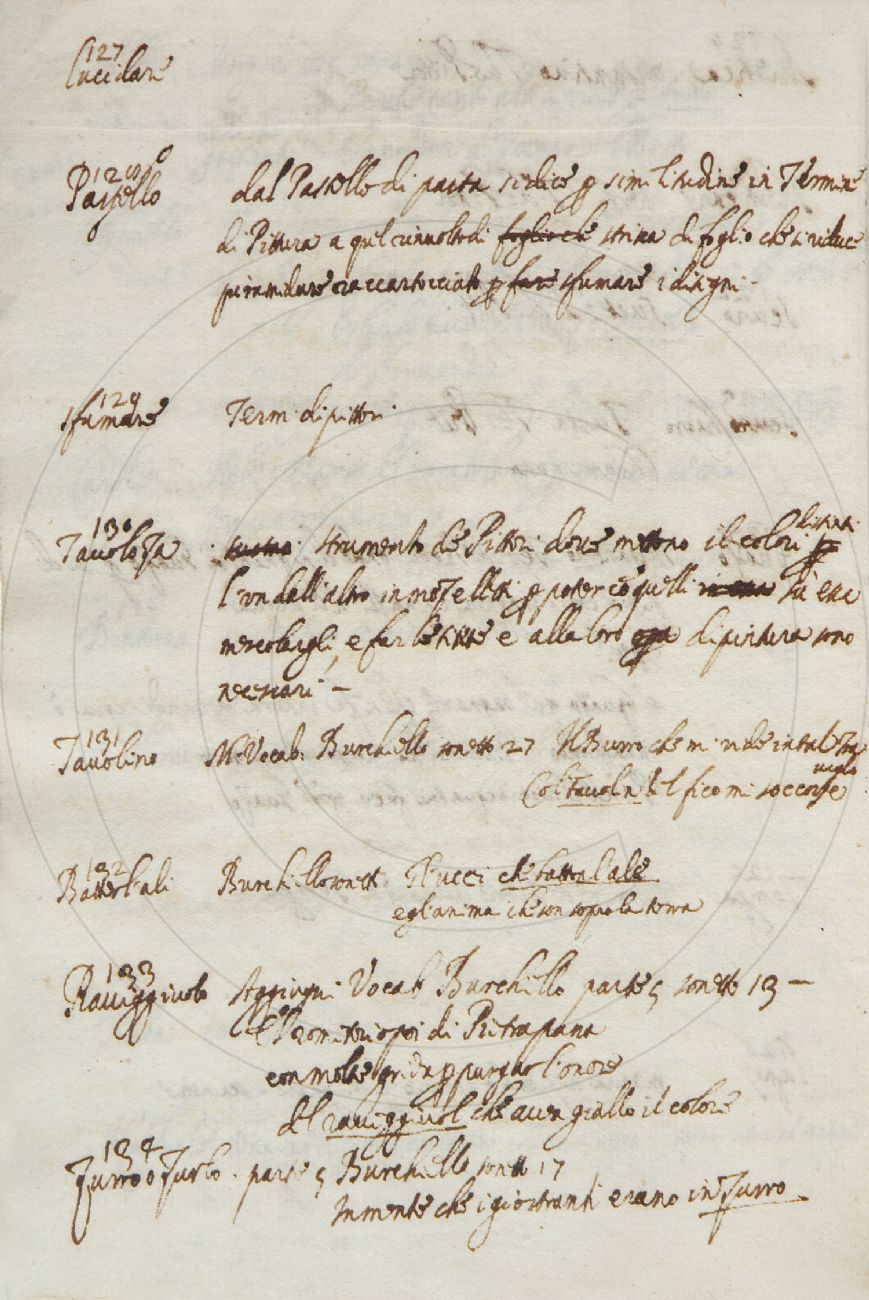 127
Lucidare
128
Pastello dal Pastello di pasta si dice p similitudine in Termine
di Pittura a quel rinvolto di foglio che strina di foglio che si riduce
piramidare raccartocciato p fare sfumare i disegni
129
sfumare Term. di pittori
130
Tavoloza strumento de Pittori dove mettono il colori distinti
l'un dall'altro in mozelletti p poter cō quelli sù essa
mescolargli, e far le tinte e alla loro dipintura sono
necessari —
131
Tavolino Vocab. Burchiello sonetto 27 Il Burro che si vide in tal
Col tavolin del fico mi soccorse
132
Batter l'ali Burchiello sonett che batton l'ale
e gl'anima che son sopra la terra
133
Raviggivolo Aggiugni Vocab Burchiello parte 5 sonetto 13 —
E romiti poi di Pietrapana
con molte grida p purgar l'onore
del raviggivol che avea giallo il colore
134
Zurro o Zurlo. parte 5 Burchiello sonett 17
In mente che i giostranti erano in Zurro